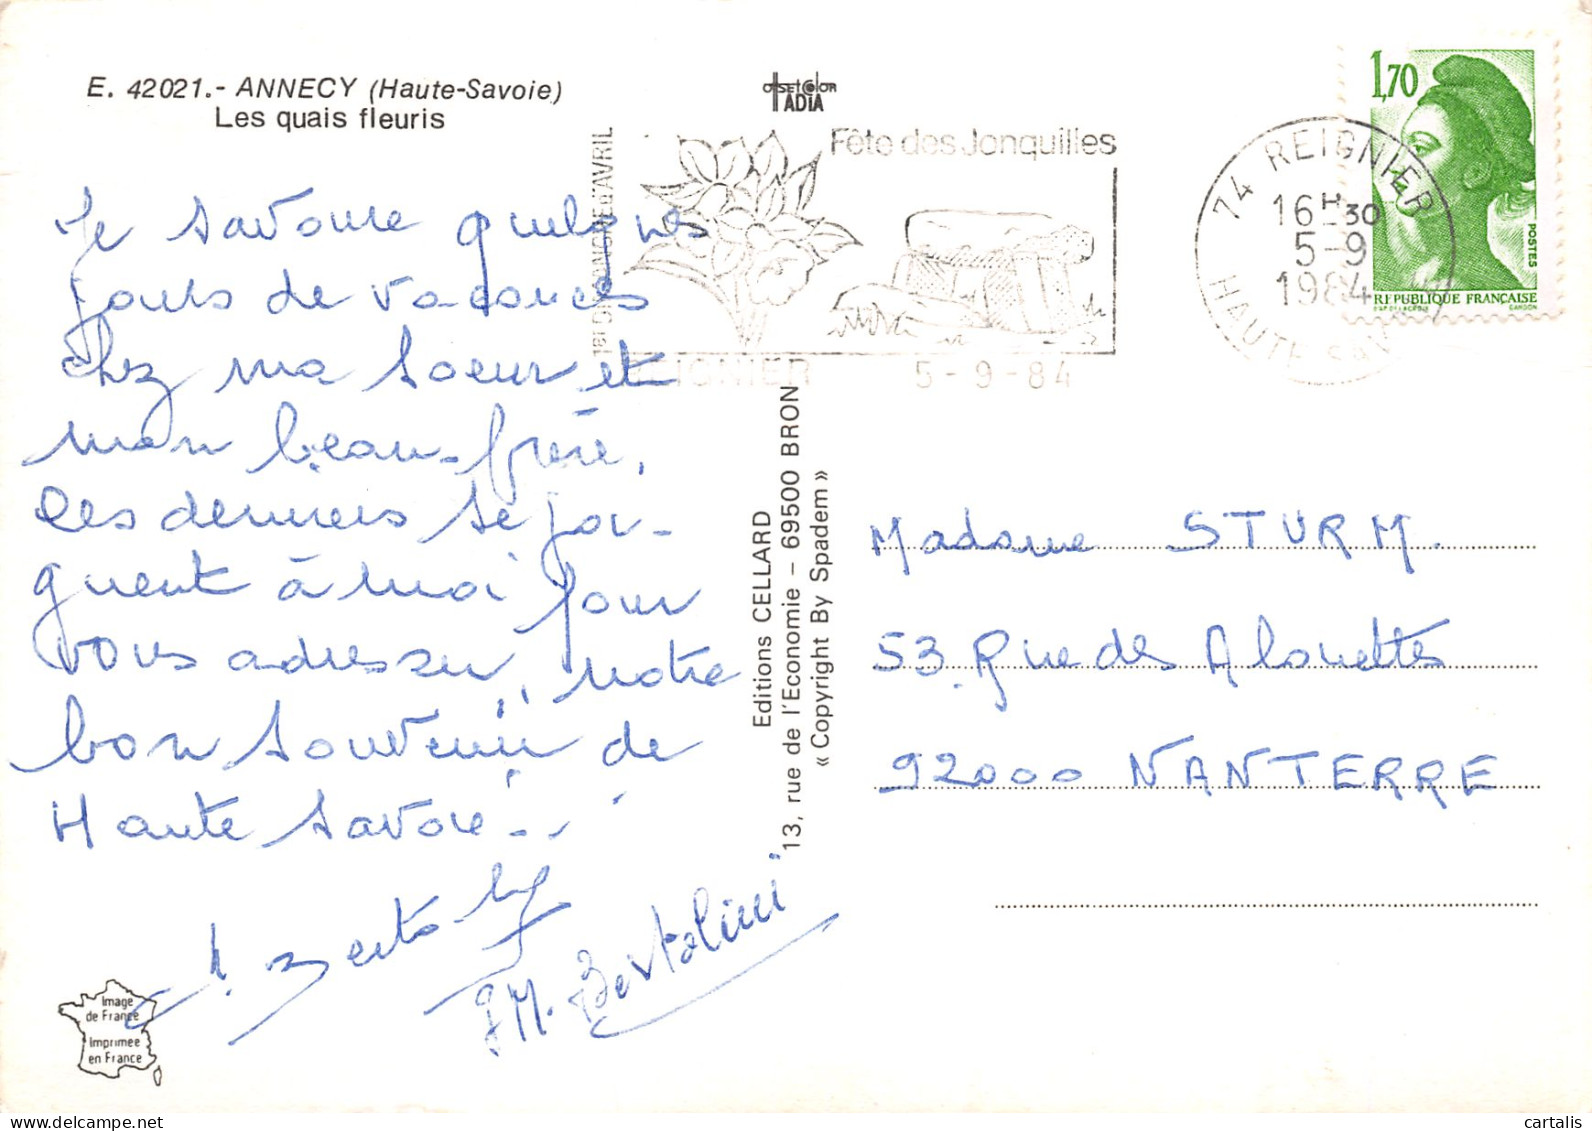 E. 42021.- ANNECY (Haute-Savoie)
Les quais fleuris
Je savoure quelques
jours de vacances
chez ma soeur et
mon beau-frère,
ces derniers se joi-
gnent à moi pour
vous adresser, notre
bon souvenir de
Haute Savoie...
JM. Bertolini
Image
de France
Imprimee
en France
OffsetColor
IADIA
1er DIMANCHE d'AVRIL
Fête des Jonquilles
REIGNIER
5-9-84
Editions CELLARD
13, rue de l'Economie – 69500 BRON
« Copyright By Spadem »
74 REIGNIER
16H30
5-9
1984
HAUTE SAVOIE
1,70
POSTES
REPUBLIQUE FRANÇAISE
D'AP. DELACROIX GANDON
Madame STURM.
53. Rue des Alouettes
92000 NANTERRE
cartalis